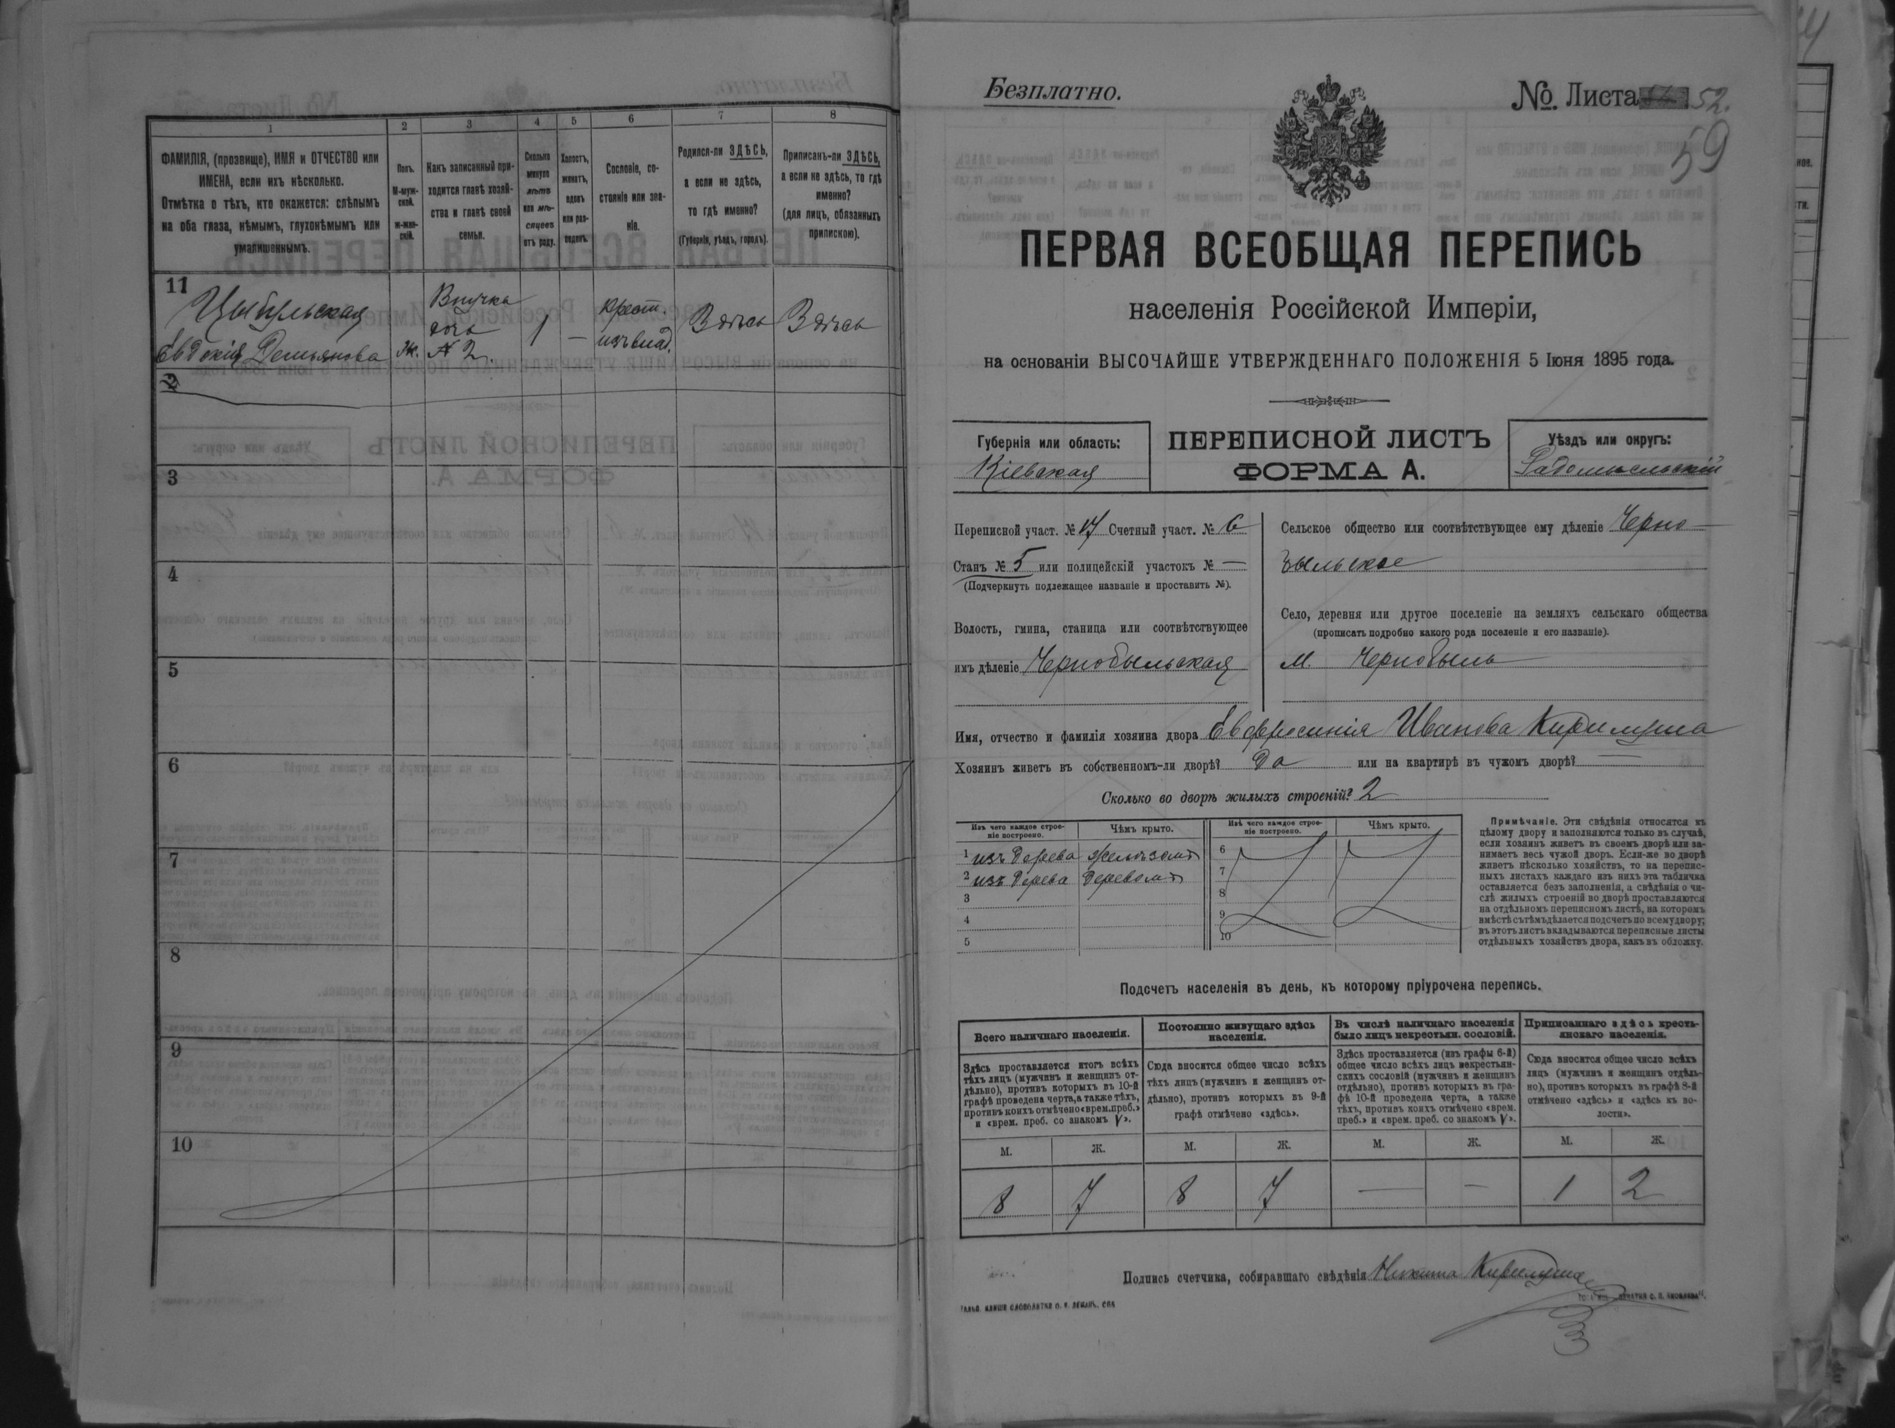 1
2
3
4
5
6
7
8
ФАМИЛІЯ, (прозвище), ИМЯ и ОТЧЕСТВО или
ИМЕНА, если ихъ нѣсколько.
Отмѣтка о тѣхъ, кто окажется: слѣпымъ
на оба глаза, нѣмымъ, глухонѣмымъ или
умалишоннымъ.
Полъ.
М-муж-
ской.
Ж-жен-
скій.
Какъ записанный при-
ходится главѣ хозяй-
ства и главѣ своей
семьи.
Сколько
минуло
лѣтъ
или мѣ-
сяцевъ
отъ роду.
Холостъ,
женатъ,
вдовъ
или раз-
веденъ.
Сословіе, со-
стояніе или зва-
ніе.
Родился-ли ЗДѢСЬ,
а если не здѣсь,
то гдѣ именно?
(Губернія, уѣздъ, городъ).
Приписанъ-ли ЗДѢСЬ,
а если не здѣсь, то гдѣ
именно?
(для лицъ, обязанныхъ
припискою).
11
Цыбульская
Евдокія Демьянова
Ж.
Внучка
дочь
№ 2.
1
—
крест.
изъ влад.
Здѣсь
Здѣсь
2
3
4
5
6
7
8
9
10
Безплатно.
№ Листа 52.
59
ПЕРВАЯ ВСЕОБЩАЯ ПЕРЕПИСЬ
населенія Россійской Имперіи,
на основаніи ВЫСОЧАЙШЕ УТВЕРЖДЕННАГО ПОЛОЖЕНІЯ 5 Іюня 1895 года.
Губернія или область:
Кіевская
ПЕРЕПИСНОЙ ЛИСТЪ
ФОРМА А.
Уѣздъ или округъ:
Радомысльскій
Переписной участ. № 17 Счетный участ. № 6
Станъ № 5 или полицейскій участокъ № —
(Подчеркнуть подлежащее названіе и проставить №).
Волость, гмина, станица или соотвѣтствующее
имъ дѣленіе Чернобыльская
Сельское общество или соотвѣтствующее ему дѣленіе Черно-
быльское
Село, деревня или другое поселеніе на земляхъ сельскаго общества
(прописать подробно какого рода поселеніе и его названіе).
М. Чернобыль
Имя, отчество и фамилія хозяина двора Евфросинія Иванова Кириллуша
Хозяинъ живетъ въ собственномъ-ли дворѣ? да или на квартирѣ въ чужомъ дворѣ? —
Сколько во дворѣ жилыхъ строеній? 2
Изъ чего каждое строе-
ніе построено.
Чѣмъ крыто.
Изъ чего каждое строе-
ніе построено.
Чѣмъ крыто.
1 изъ дерева желѣзомъ
2 изъ дерева деревомъ
3
4
5
6
7
8
9
10
Примѣчаніе. Эти свѣдѣнія относятся къ
цѣлому двору и заполняются только въ случаѣ,
если хозяинъ живетъ въ своемъ дворѣ или за-
нимаетъ весь чужой дворъ. Если-же во дворѣ
живетъ нѣсколько хозяйствъ, то на перепис-
ныхъ листахъ каждаго изъ нихъ эта табличка
оставляется безъ заполненія, а свѣдѣнія о чи-
слѣ жилыхъ строеній во дворѣ проставляются
на отдѣльномъ переписномъ листѣ, на которомъ
вмѣстѣ съ тѣмъ дѣлается подсчетъ по всему двору;
въ этотъ листъ вкладываются переписные листы
отдѣльныхъ хозяйствъ двора, какъ въ обложку.
Подсчетъ населенія въ день, къ которому пріурочена перепись.
Всего наличнаго населенія.
Здѣсь проставляется итогъ всѣхъ
тѣхъ лицъ (мужчинъ и женщинъ от-
дѣльно), противъ которыхъ въ 10-й
графѣ проведена черта, а также тѣхъ,
противъ коихъ отмѣчено «врем. преб.»
и «врем. преб. со знакомъ V».
Постоянно живущаго здѣсь
населенія.
Сюда вносится общее число всѣхъ
тѣхъ лицъ (мужчинъ и женщинъ от-
дѣльно), противъ которыхъ въ 9-й
графѣ отмѣчено «здѣсь».
Въ числѣ наличнаго населенія
было лицъ некрестьян. сословій.
Здѣсь проставляется (изъ графы 6-й)
общее число всѣхъ лицъ некрестьян-
скихъ сословій (мужчинъ и женщинъ
отдѣльно), противъ которыхъ въ гра-
фѣ 10-й проведена черта, а также
тѣхъ, противъ коихъ отмѣчено «врем.
преб.» и «врем. преб. со знакомъ V».
Приписаннаго здѣсь кресть-
янскаго населенія.
Сюда вносится общее число всѣхъ
лицъ (мужчинъ и женщинъ отдѣль-
но), противъ которыхъ въ графѣ 8-й
отмѣчено «здѣсь» и «здѣсь къ во-
лости».
М. Ж. М. Ж. М. Ж. М. Ж.
8 7 8 7 — — 1 2
Подпись счетчика, собиравшаго свѣдѣнія Кириллуша